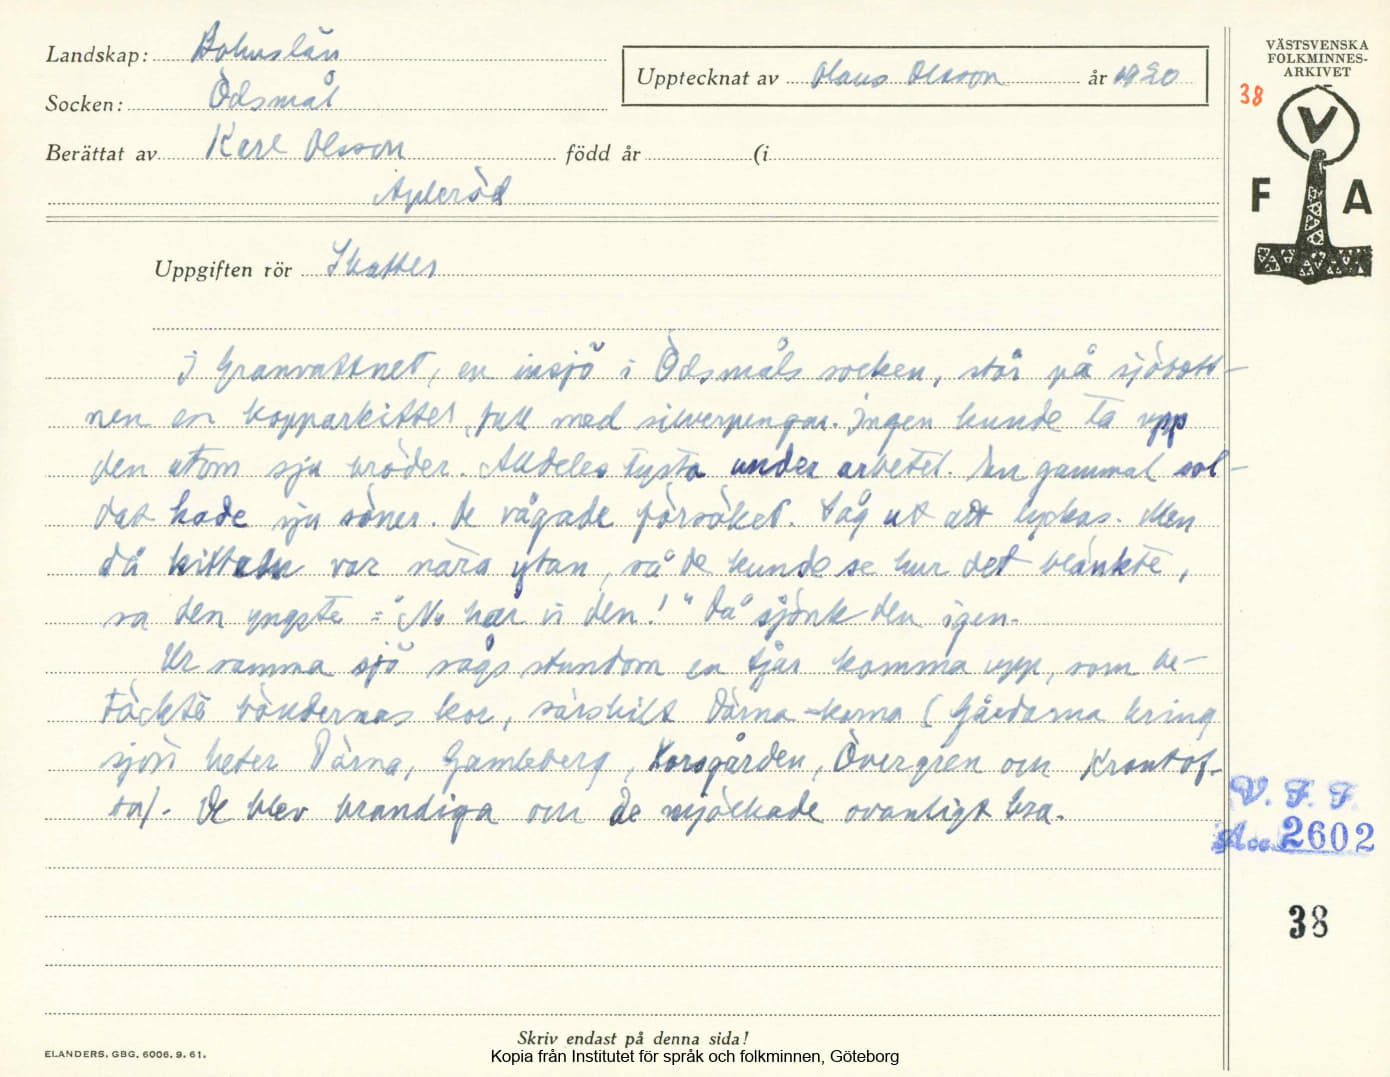 Landskap: Bohuslän
Socken: Ödsmål
Berättat av Karl Olsson född år (i
Apleröd
Upptecknat av Olaus Olsson år 1920
VÄSTSVENSKA
FOLKMINNES-
ARKIVET
38
V
F A
Uppgiften rör Skatter
I Granvattnet, en insjö i Ödsmåls socken, står på sjöbott-
nen en kopparkittel full med silverpengar. Ingen kunde ta upp
den utom sju bröder. Alldeles tysta under arbetet. En gammal sol-
dat hade sju söner. De vågade försöket. Såg ut att lyckas. Men
då kitteln var nära ytan, så de kunde se hur det blänkte,
sa den yngste: "Nu har vi den!" Då sjönk den igen.
Ur samma sjö sågs stundom en tjur komma upp, som be-
täckte böndernas kor, särskilt Därna-korna (Gårdarna kring
sjön heter Därna, Gamleberg, Korsgården, Övergren och Krontof-
ta). De blev brandiga och de mjölkade ovanligt bra.
V. F. F.
Acc. 2602
38
Skriv endast på denna sida!
ELANDERS. GBG. 6006. 9. 61.
Kopia från Institutet för språk och folkminnen, Göteborg